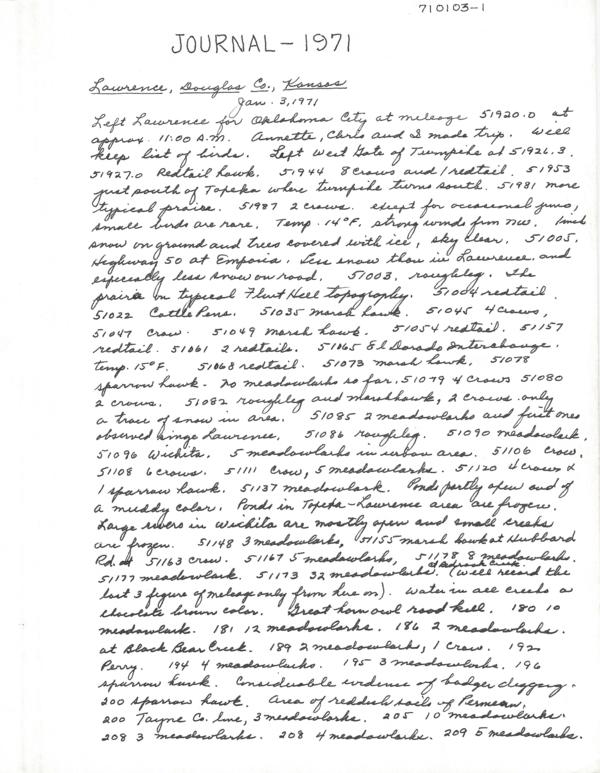 710103-1
JOURNAL - 1971
Lawrence, Douglas Co., Kansas
Jan. 3, 1971
Left Lawrence for Oklahoma City at mileage 51920.0 at
approx. 11:00 A.M. Annette, Chris and I made trip. Will
keep list of birds. Left West Gate of Turnpike at 51926.3.
51927.0 Redtail hawk. 51944 8 crows and 1 redtail. 51953
just south of Topeka where turnpike turns south. 51981 more
typical praise. 51987 2 crows. except for occasional juncos,
small birds are rare. Temp. 14°F, strong winds from NW. 1 inch
snow on ground and trees covered with ice, sky clear. 51005.
Highway 50 at Emporia. Less snow than in Lawrence and
especially less snow on road. 51003. roughleg. The
prairie in typical Flint Hill topography. 51004 redtail.
51022 Cattle Pens. 51035 marsh hawk. 51045 4 crows,
51047 crow. 51049 marsh hawk. 51054 redtail. 51157
redtail. 51061 2 redtails. 51065 El Dorado Interchange.
temp. 15°F. 51068 redtail. 51073 marsh hawk. 51078
sparrow hawk - no meadowlarks so far. 51079 4 crows 51080
2 crows. 51082 roughleg and marsh hawk, 2 crows. only
a trace of snow in area. 51085 2 meadowlarks and first ones
observed since Lawrence. 51086 roughleg. 51090 meadowlark,
51096 Wichita. 5 meadowlarks in urban area. 51106 crow.
51108 6 crows. 51111 crow, 5 meadowlarks. 51120 4 crows &
1 sparrow hawk. 51137 meadowlark. Ponds partly open and of
a muddy color. Ponds in Topeka-Lawrence area are frozen.
Large rivers in Wichita are mostly open and small creeks
are frozen. 51148 3 meadowlarks, 51155 marsh hawk at Hubbard
Rd. 51163 crow. 51167 5 meadowlarks, 51178 8 meadowlarks.
51177 meadowlark. 51173 32 meadowlarks. (Will record the
last 3 figure of mileage only from here on). Water in all creeks a
chocolate brown color. Great horn owl road kill. 180 10
meadowlark. 181 12 meadowlarks. 186 2 meadowlarks.
at Black Bear Creek. 189 2 meadowlark, 1 crow. 192
Perry. 194 4 meadowlarks. 195 3 meadowlarks. 196
sparrow hawk. Considerable evidence of badger digging.
200 sparrow hawk. Area of reddish soils of Permian.
200 Payne Co. line, 3 meadowlarks. 205 10 meadowlarks.
208 3 meadowlarks. 208 4 meadowlarks. 209 5 meadowlarks.